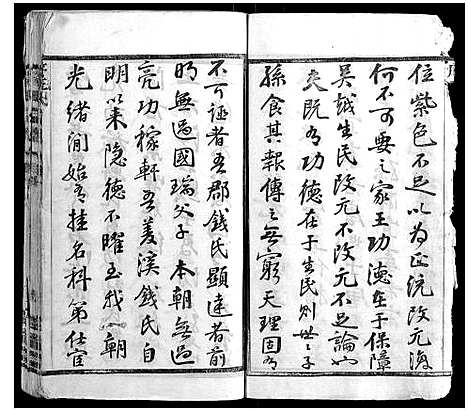 位紫色不足以为正統改元復
何不可要之家王功德在于保障
吴誠生民改元不改元不足論也
夫既有功德在于生民則世之子
孫食其報傳之無窮天理固有
不可誣者吾郡錢氏顯達者前
明無過國瑞父子本朝無過
亮功稼軒吾菱溪錢氏自
明以来隐德不曜至我朝
光绪间始有挂名科第仕宦